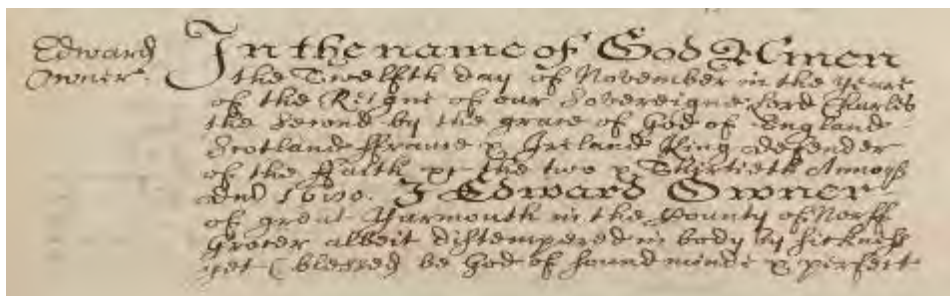 Edward
Owner.
In the name of God Amen
the Twelfth day of November in the yeare
of the Reigne of our Sovereigne Lord Charles
the Second by the grace of God of England
Scotland Ffrance & Ireland King Defender
of the Ffaith &c the two & Thirtieth Annoq
Dni 1680. I Edward Owner
of great Yarmouth in the County of Norff
Grocer albeit distempered in body by sicknes
yet (blessed be God of sound minde & perfect